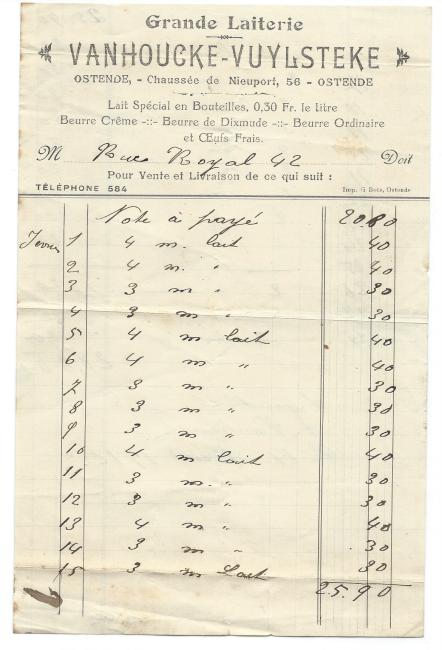 Grande Laiterie
VANHOUCKE-VUYLSTEKE
OSTENDE, - Chaussée de Nieuport, 56 - OSTENDE
Lait Spécial en Bouteilles, 0,30 Fr. le litre
Beurre Crême -::- Beurre de Dixmude -::- Beurre Ordinaire
et Œufs Frais.
M Rue Royal 42 Doit
Pour Vente et Livraison de ce qui suit :
TÉLÉPHONE 584 Imp. G Bots, Ostende
Note à payé 20.80
1 4 m. lait 40
2 4 m. " 40
3 3 m " 30
4 3 m " 30
5 4 m lait 40
6 4 m " 40
7 3 m " 30
8 3 m " 30
9 3 m " 30
10 4 m lait 40
11 3 m. " 30
12 3 m " 30
13 4 m " 40
14 3 m " 30
15 3 m Lait 30
25.90